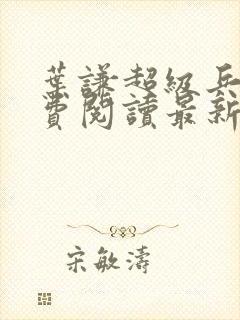 葉謙超級兵
費閱讀最新
宋敏濤